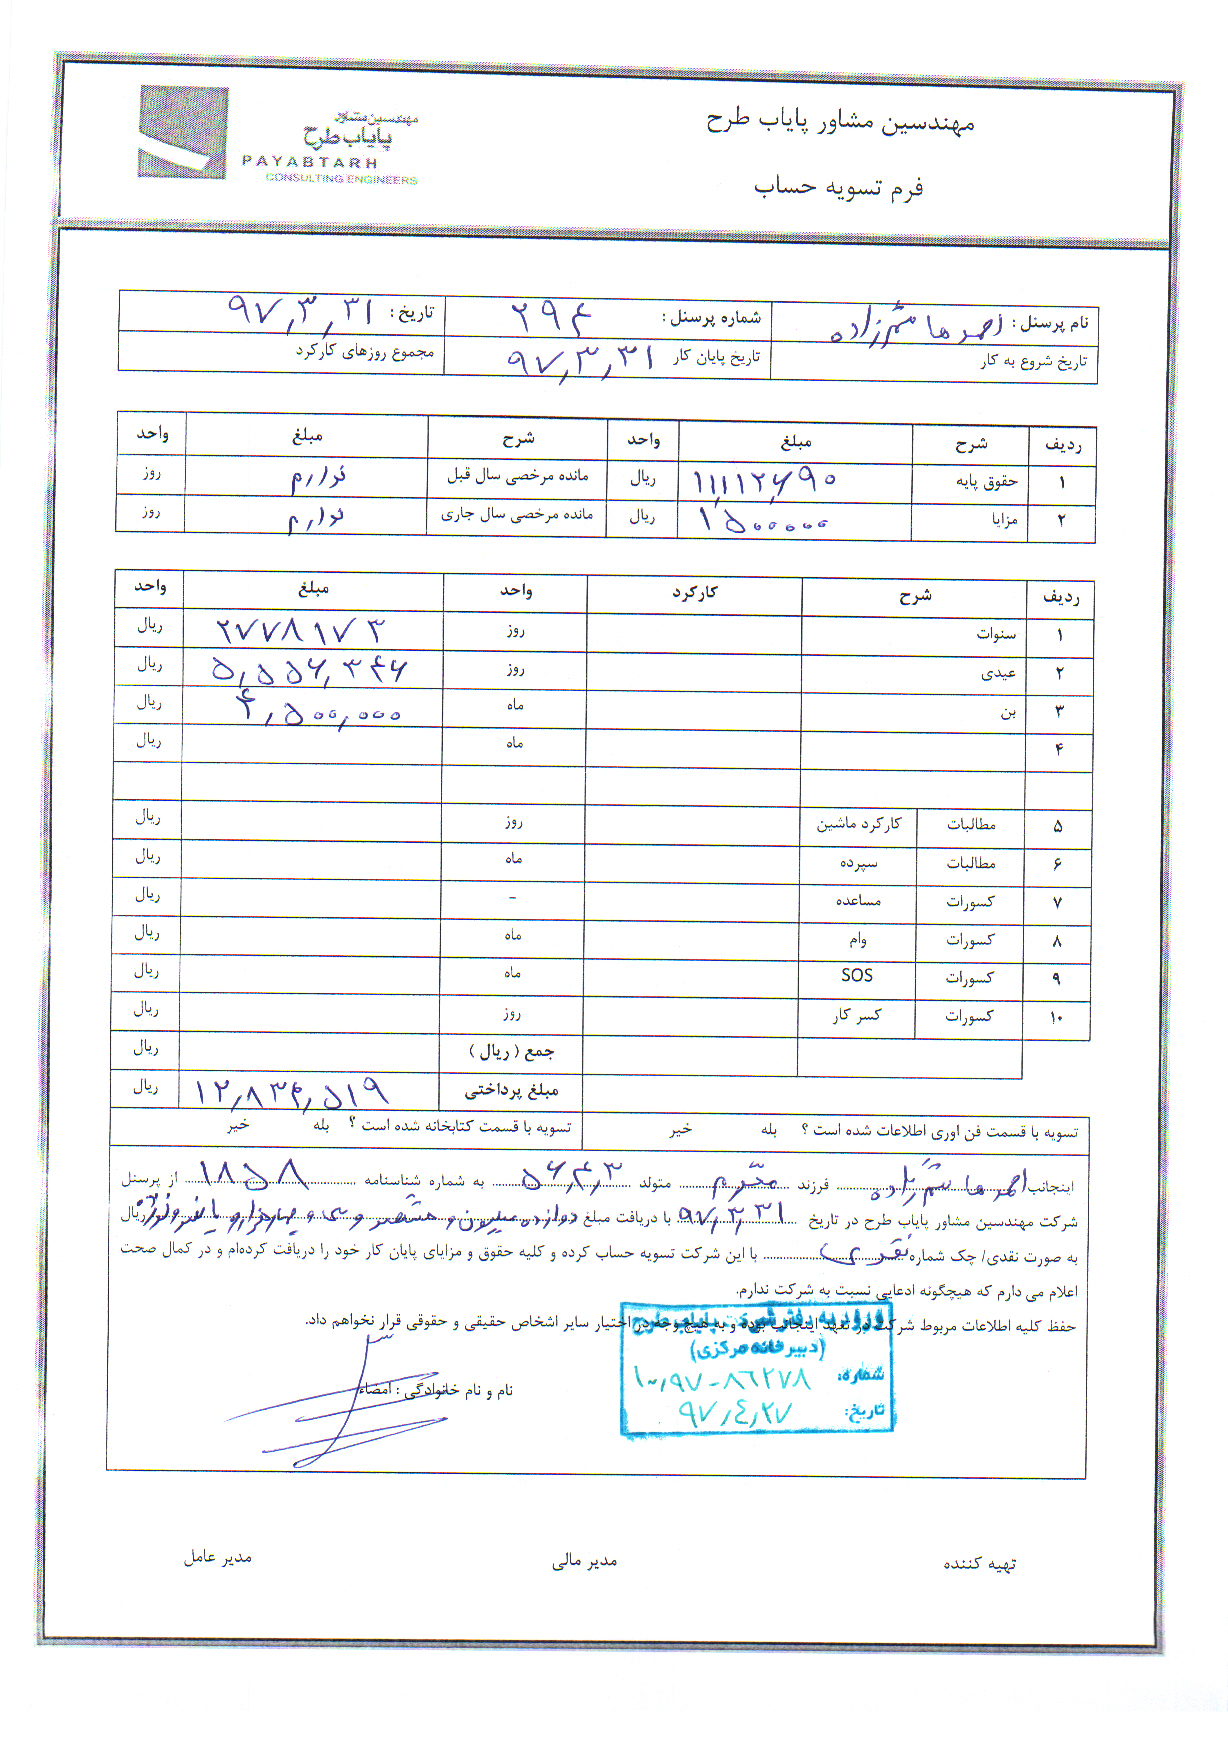 مهندسین مشاور پایاب طرح
مهندسین مشاور
پایاب طرح
PAYABTARH
CONSULTING ENGINEERS
فرم تسویه حساب
نام پرسنل : احمد هاشم زاده شماره پرسنل : ۲۹۴ تاریخ : ۹۷,۳,۳۱
تاریخ شروع به کار تاریخ پایان کار ۹۷,۳,۳۱ مجموع روزهای کارکرد
ردیف شرح مبلغ واحد شرح مبلغ واحد
۱ حقوق پایه ۱۱,۱۱۲,۶۹۰ ریال مانده مرخصی سال قبل ندارم روز
۲ مزایا ۱۵۰۰۰۰۰ ریال مانده مرخصی سال جاری ندارم روز
ردیف شرح کارکرد واحد مبلغ واحد
۱ سنوات روز ۲۷۷۸۱۷۳ ریال
۲ عیدی روز ۵,۵۵۶,۳۴۶ ریال
۳ بن ماه ۴,۵۰۰,۰۰۰ ریال
۴ ماه ریال
۵ مطالبات کارکرد ماشین روز ریال
۶ مطالبات سپرده ماه ریال
۷ کسورات مساعده - ریال
۸ کسورات وام ماه ریال
۹ کسورات SOS ماه ریال
۱۰ کسورات کسر کار روز ریال
جمع ( ریال ) ریال
مبلغ پرداختی ۱۲,۸۳۴,۵۱۹ ریال
تسویه با قسمت فن اوری اطلاعات شده است ؟ بله خیر تسویه با قسمت کتابخانه شده است ؟ بله خیر
اینجانب احمد هاشم زاده فرزند محرم متولد ۵۶,۴,۳ به شماره شناسنامه ۱۸۵۸ از پرسنل
شرکت مهندسین مشاور پایاب طرح در تاریخ ۹۷,۳,۳۱ با دریافت مبلغ دوازده میلیون و هشتصد و سی و چهار هزار و پانصد و نوزده ریال
به صورت نقدی/ چک شماره نقدی با این شرکت تسویه حساب کرده و کلیه حقوق و مزایای پایان کار خود را دریافت کرده‌ام و در کمال صحت
اعلام می دارم که هیچگونه ادعایی نسبت به شرکت ندارم.
حفظ کلیه اطلاعات مربوط شرکت در تعهد اینجانب بوده و به هیچ وجه در اختیار سایر اشخاص حقیقی و حقوقی قرار نخواهم داد.
ورود به دفتر شرکت پایاب طرح
(دبیرخانه مرکزی)
شماره: ۱۰,۹۷-۸۶۲۷۸
تاریخ: ۹۷,۴,۲۷
نام و نام خانوادگی : امضاء
تهیه کننده مدیر مالی مدیر عامل